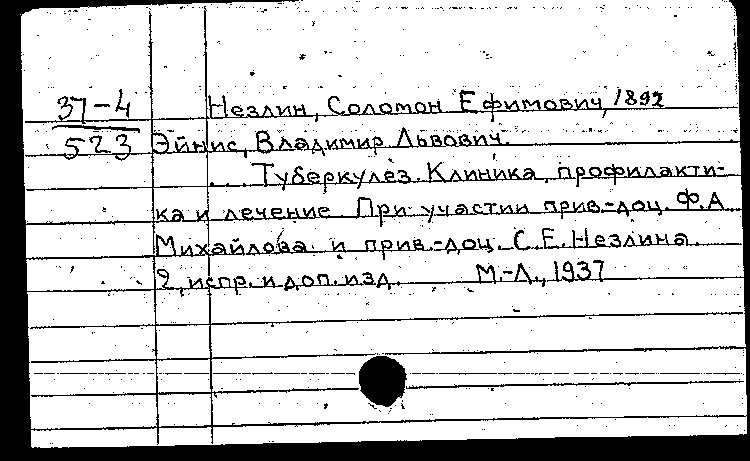 37-4 Незлин, Соломон Ефимович, 1892
523 Эйнис, Владимир Львович.
... Туберкулез. Клиника, профилакти-
ка и лечение При участии прив.-доц. Ф.А.
Михайлова и прив.-доц. С.Е. Незлина.
2, испр. и доп. изд. М.-Л., 1937